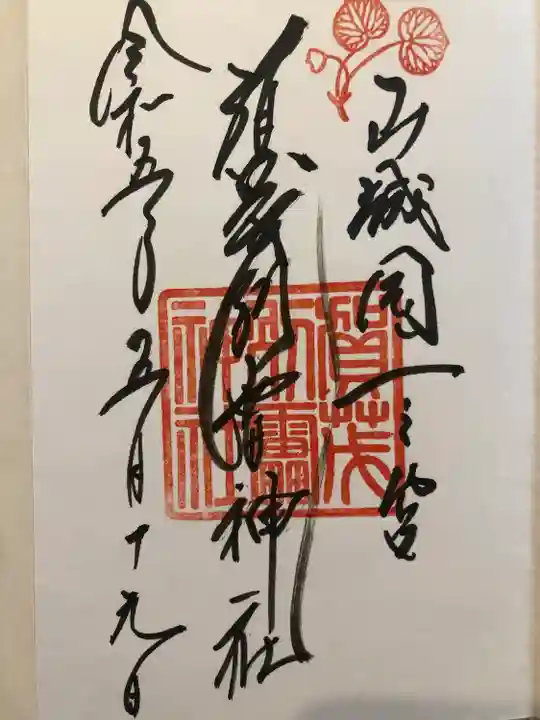 山城國一之宮
賀茂別雷神社
令和五年五月十九日
賀茂
別雷
神社